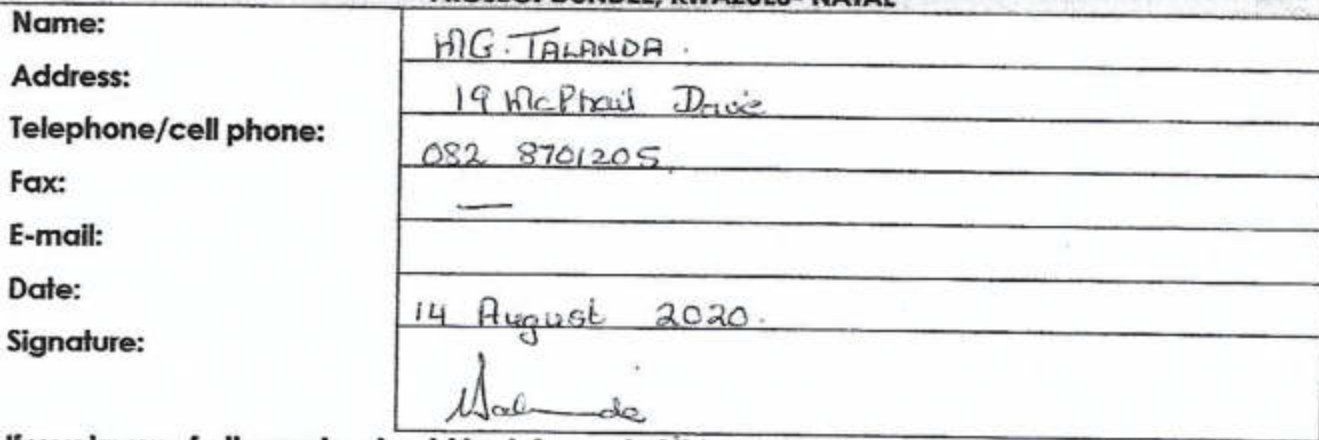 DUNDEE, KWAZULU- NATAL
Name: M.G. TALANDA.
Address: 19 McPhail Drive
Telephone/cell phone: 082 8701205
Fax: —
E-mail:
Date: 14 August 2020.
Signature: